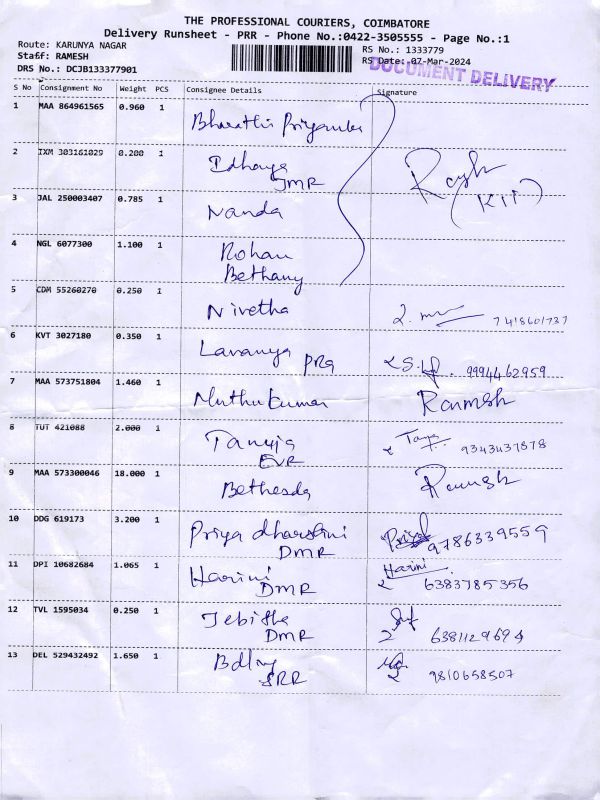 THE PROFESSIONAL COURIERS, COIMBATORE
Delivery Runsheet - PRR - Phone No.:0422-3505555 - Page No.:1
Route: KARUNYA NAGAR
RS No.: 1333779
Staff: RAMESH
RS Date: 07-Mar-2024
DRS No.: DCJB133377901
DOCUMENT DELIVERY
S No Consignment No Weight PCS Consignee Details Signature
1 MAA 864961565 0.960 1
Bharathi Priyanka
2 IXM 303161029 0.200 1
Idhaya
JMR
3 JAL 250003407 0.785 1
Nanda
4 NGL 6077300 1.100 1
Rohan
Bethany
5 CDM 55260270 0.250 1
Nivetha
6 KVT 3027180 0.350 1
Lavanya PRG 9994462959
7 MAA 573751804 1.460 1
Muthukumar Ramesh
8 TUT 421088 2.000 1
Tanuja 9343437878
EVR
9 MAA 573300046 18.000 1
Bethesda Ramesh
10 DDG 619173 3.200 1
Priya dharshini 9786339559
DMR
11 DPI 10682684 1.065 1
Harini Harini
DMR 6383785356
12 TVL 1595034 0.250 1
Jebisha
DMR
13 DEL 529432492 1.650 1
SRR 9810658507